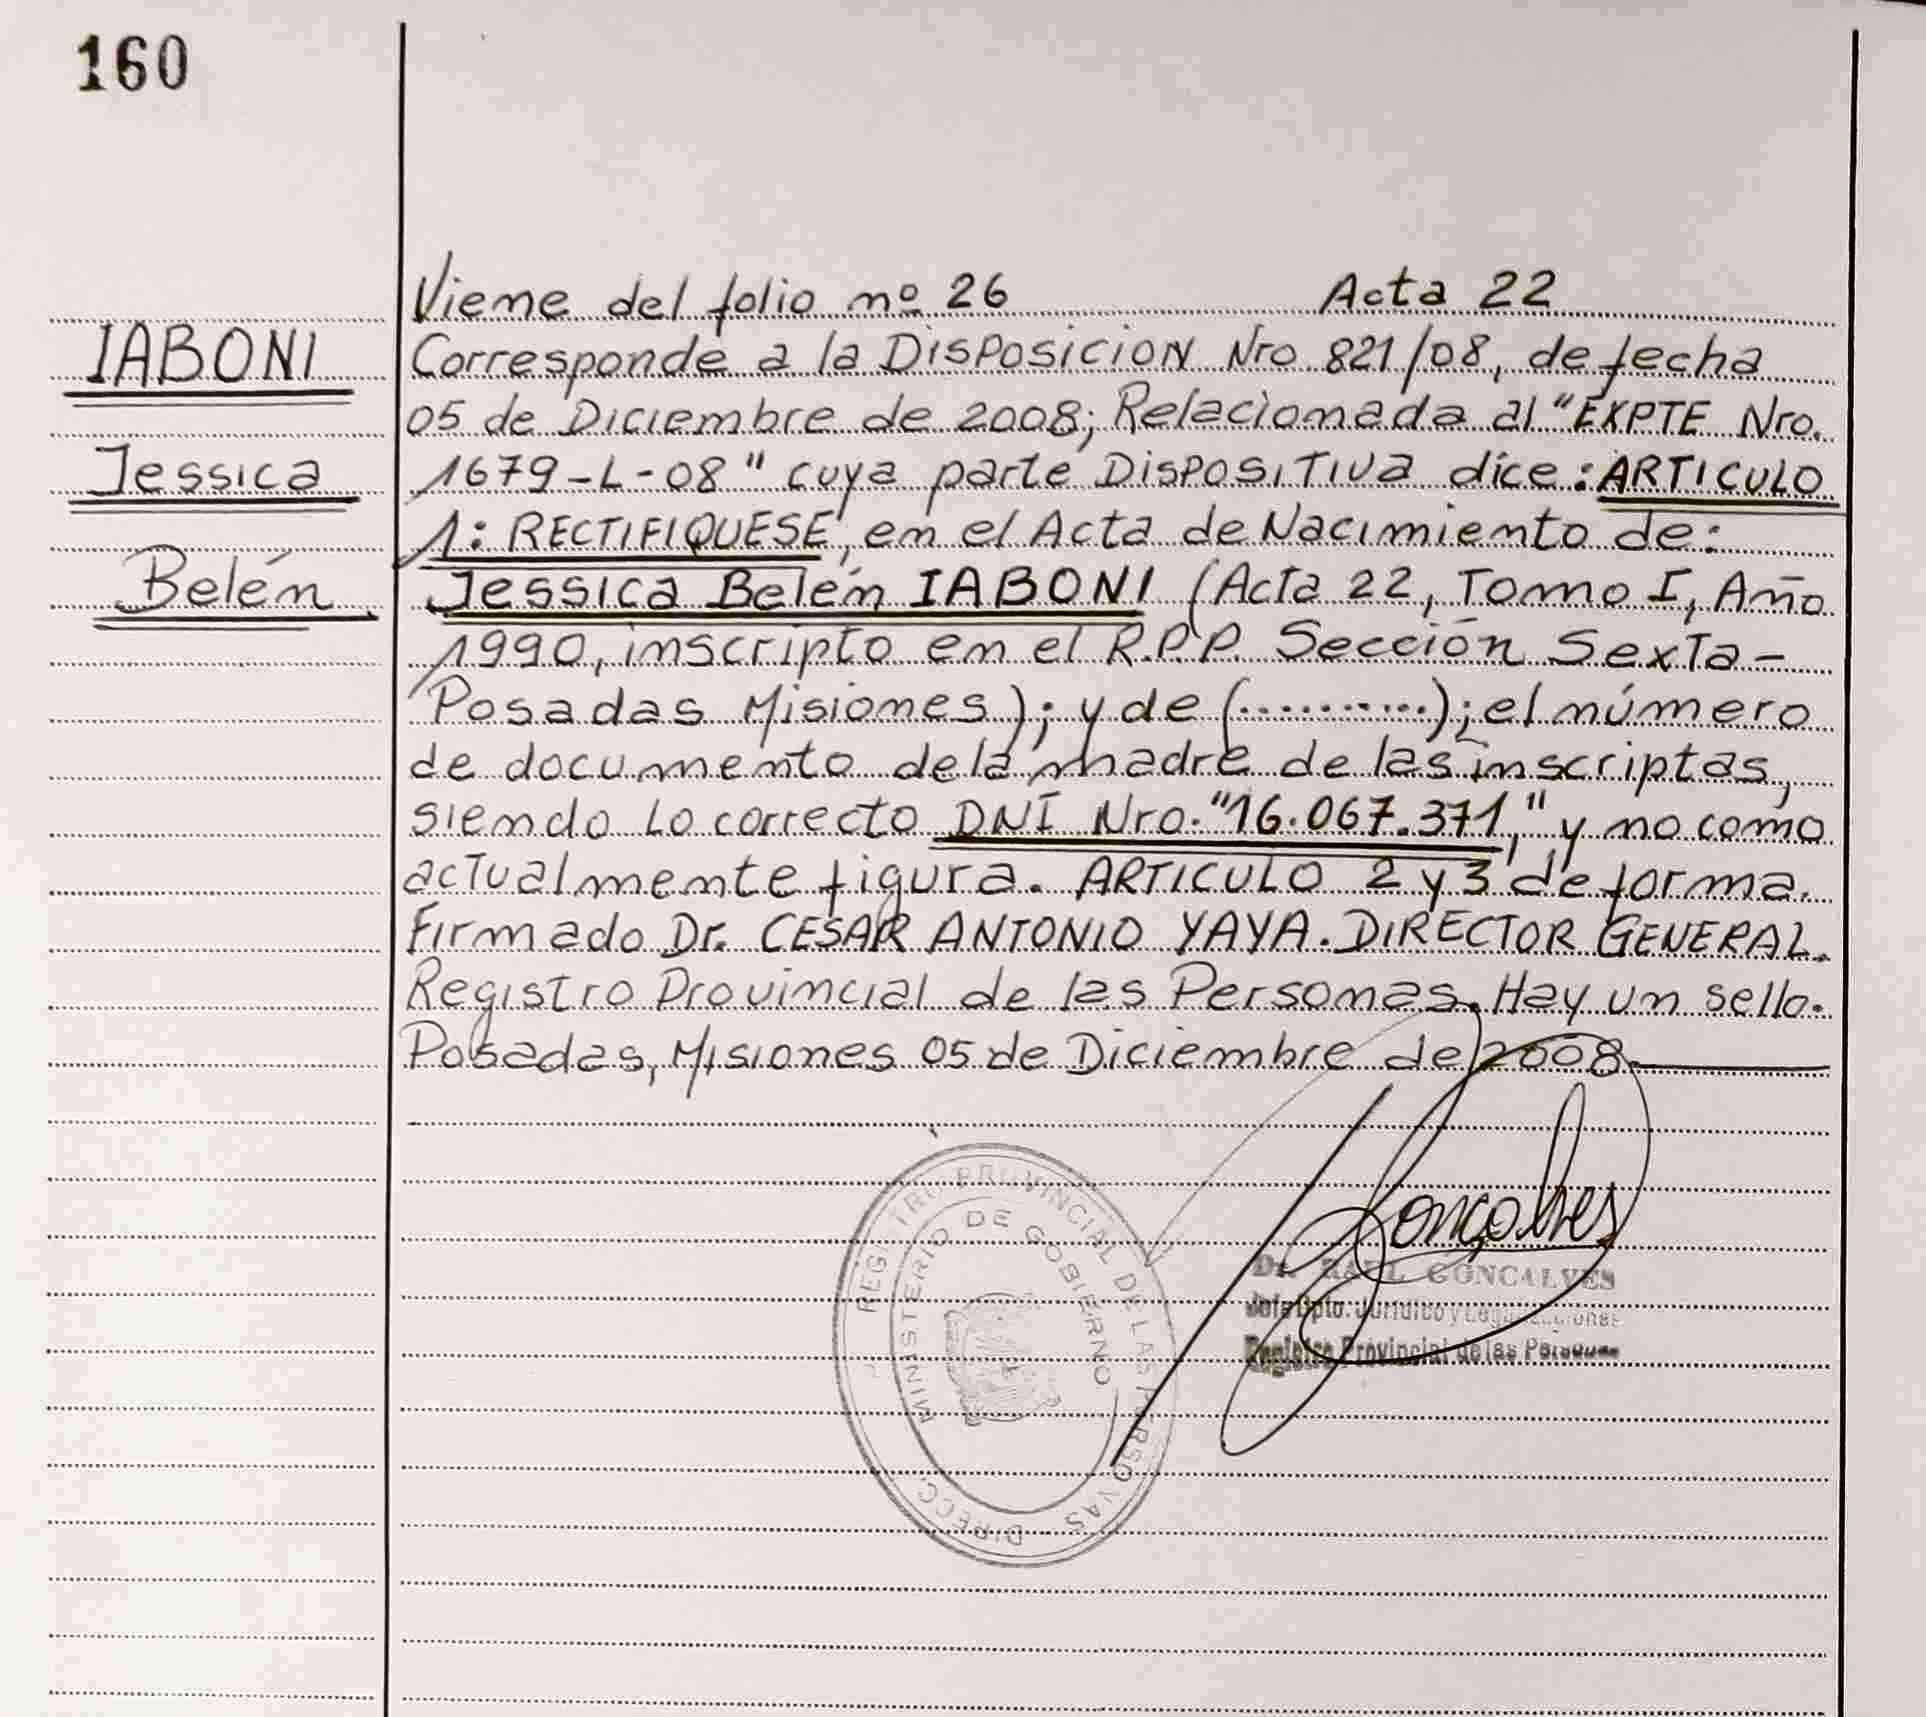 160
Viene del folio nº 26 Acta 22
IABONI
Jessica
Belén.
Corresponde a la Disposicion Nro 821/08, de fecha
05 de Diciembre de 2008; Relacionada al "EXPTE Nro.
1679-L-08" cuya parte Dispositiva dice: ARTICULO
1: RECTIFIQUESE, en el Acta de Nacimiento de:
Jessica Belén IABONI (Acta 22, Tomo I, Año
1990, inscripto en el R.P.P. Sección Sexta-
Posadas Misiones); y de (...........); el número
de documento de la madre de las inscriptas,
siendo lo correcto DNI Nro. "16.067.371," y no como
actualmente figura. ARTICULO 2 y 3 de forma.
Firmado Dr. CESAR ANTONIO YAYA. DIRECTOR GENERAL.
Registro Provincial de las Personas. Hay un sello.
Posadas, Misiones 05 de Diciembre de 2008
Goncalves
Dr. RAUL GONCALVES
Jefe Dpto. Jurídico y Legalizaciones
Registro Provincial de las Personas
DIRECC. REGISTRO PROVINCIAL DE LAS PERSONAS
MINISTERIO DE GOBIERNO